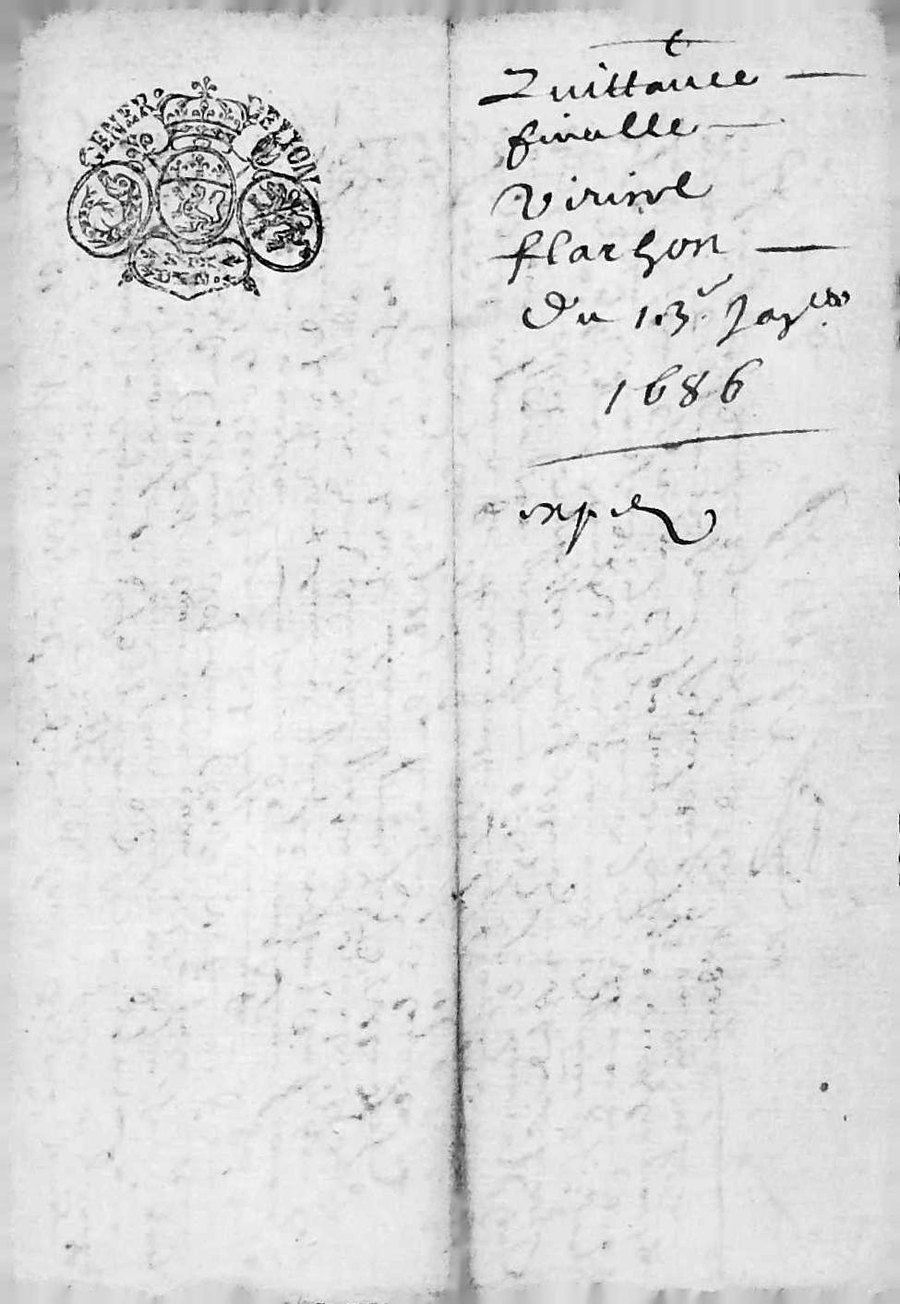 GENER. DE LYON
Quittance
finalle
flachon
Du 13e Janer
1686